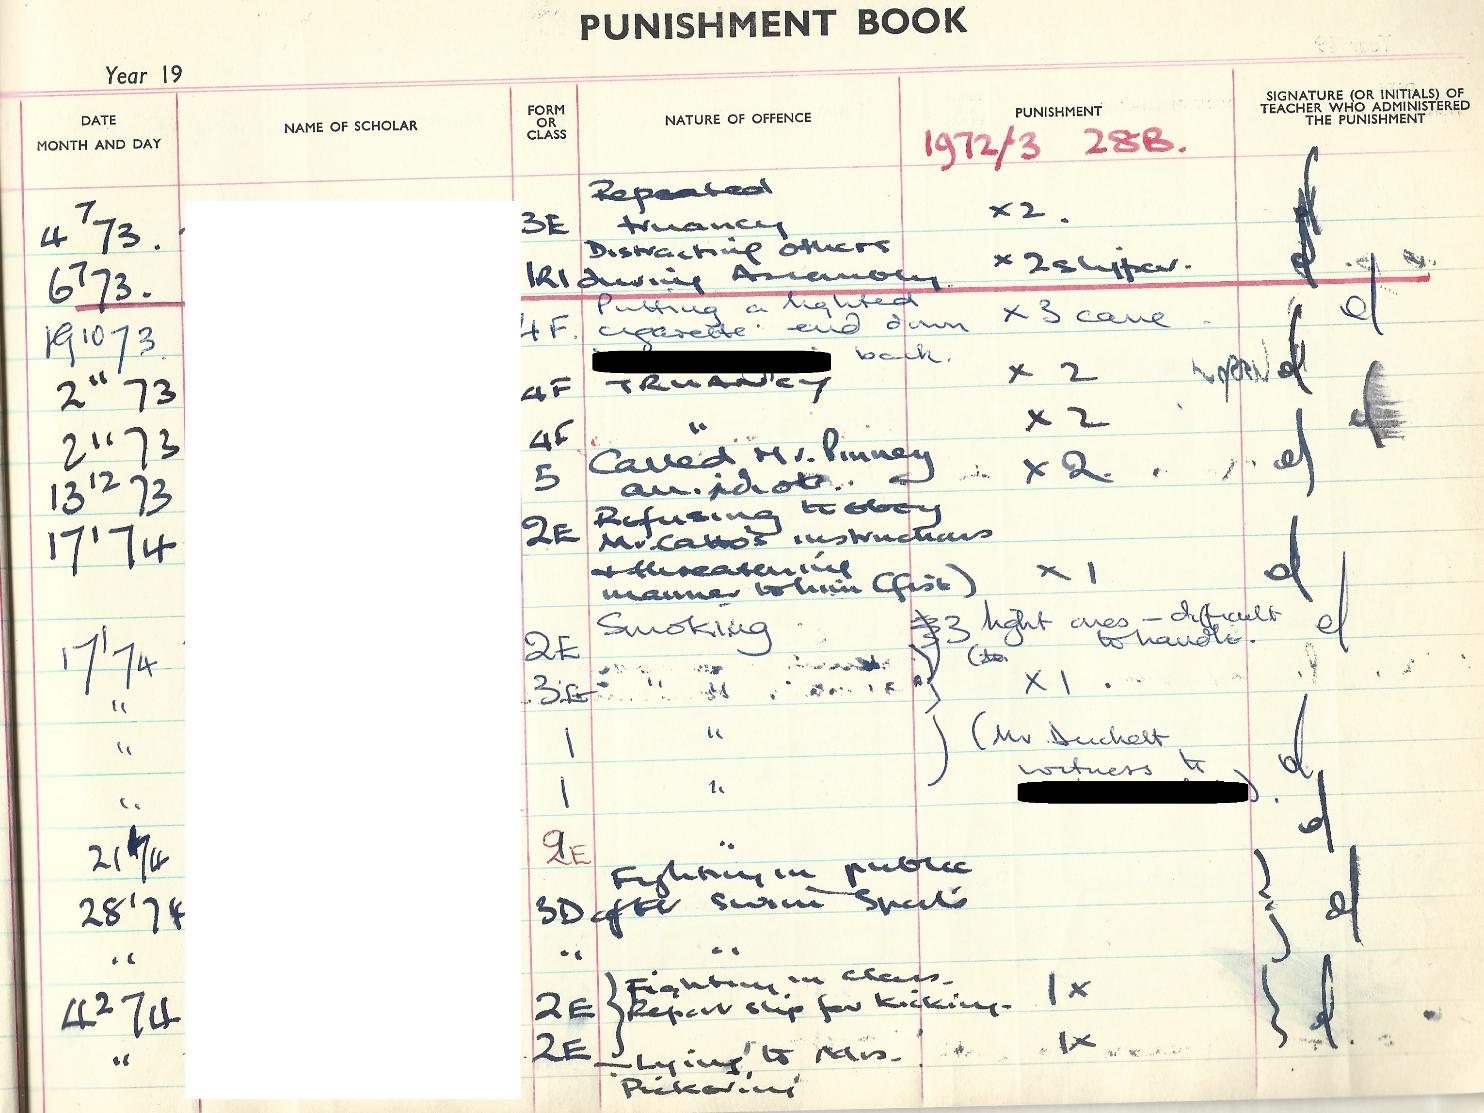 PUNISHMENT BOOK
Year 19
DATE
MONTH AND DAY
NAME OF SCHOLAR
FORM
OR
CLASS
NATURE OF OFFENCE
PUNISHMENT
SIGNATURE (OR INITIALS) OF
TEACHER WHO ADMINISTERED
THE PUNISHMENT
1972/3 28B.
Repeated
4 7 73. 3E truancy ×2.
Distracting others
6 7 73. 1R1 during Assembly ×2 slipper.
Putting a lighted
19 10 73 4F. cigarette end down ×3 cane
back.
2 11 73 4F TRUANCY ×2
2 11 73 4F " ×2
Called Mr. Pinney
13 12 73 5 an idiot. ×2.
Refusing to obey
17 1 74 2E Mr. Catto's instructions
+ threatening
manner to him (fist) ×1
Smoking 3 light ones – difficult
to handle.
17 1 74 2E
" 3E " " ×1.
" 1 " (Mr Duckett
witness to
" 1 " )
21 1 74 2E "
Fighting in public
28 1 74 3D after swim Sports
" " "
Fighting in class.
4 2 74 2E Report slip for kicking. 1×
" 2E – Lying to Mrs. 1×
Pickering